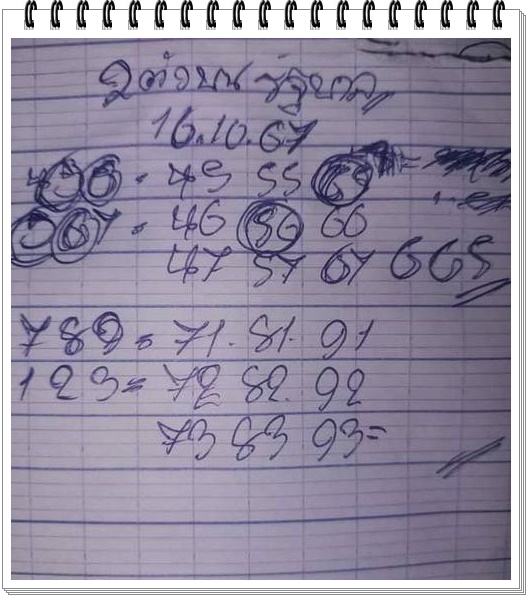 2 ตัวบน รัฐบาล
16.10.67
456 - 45 55 65
567 - 46 56 66
47 57 67 665
789 = 71. 81. 91
123 = 72 82. 92
73 83 93=